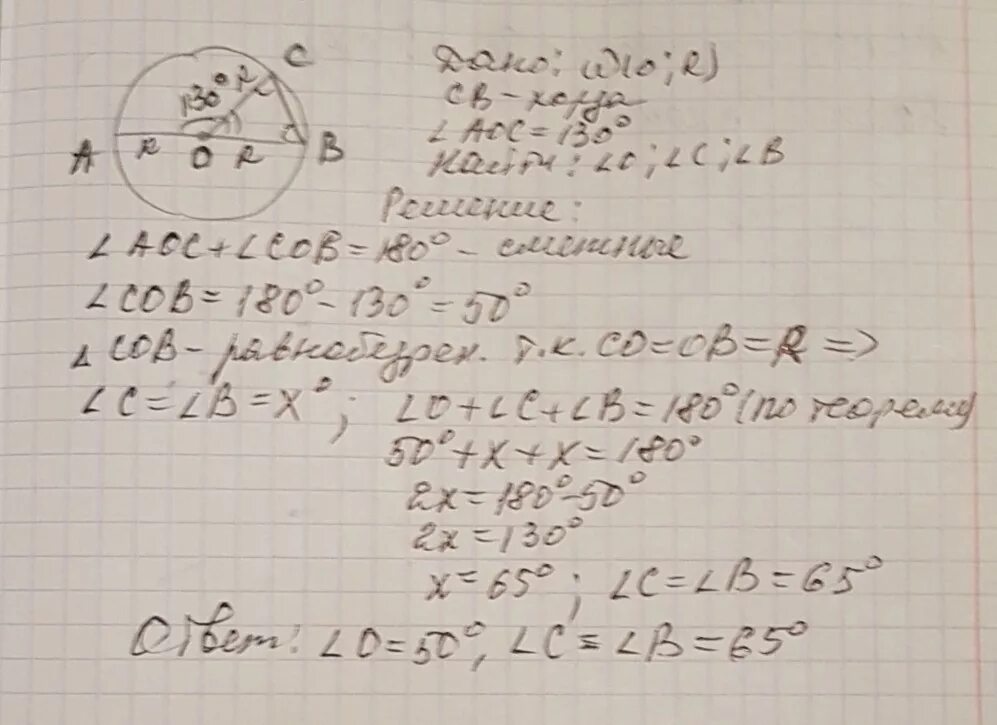 C
130° R
A R O R B
Дано: ω(O; R)
CB – хорда
∠AOC = 130°
Найти: ∠O; ∠C; ∠B
Решение:
∠AOC + ∠COB = 180° – смежные
∠COB = 180° – 130° = 50°
△COB – равнобедрен. т.к. CO = OB = R =>
∠C = ∠B = x°; ∠O + ∠C + ∠B = 180° (по теореме)
50° + x + x = 180°
2x = 180° – 50°
2x = 130°
x = 65°; ∠C = ∠B = 65°
Ответ: ∠O = 50°, ∠C = ∠B = 65°